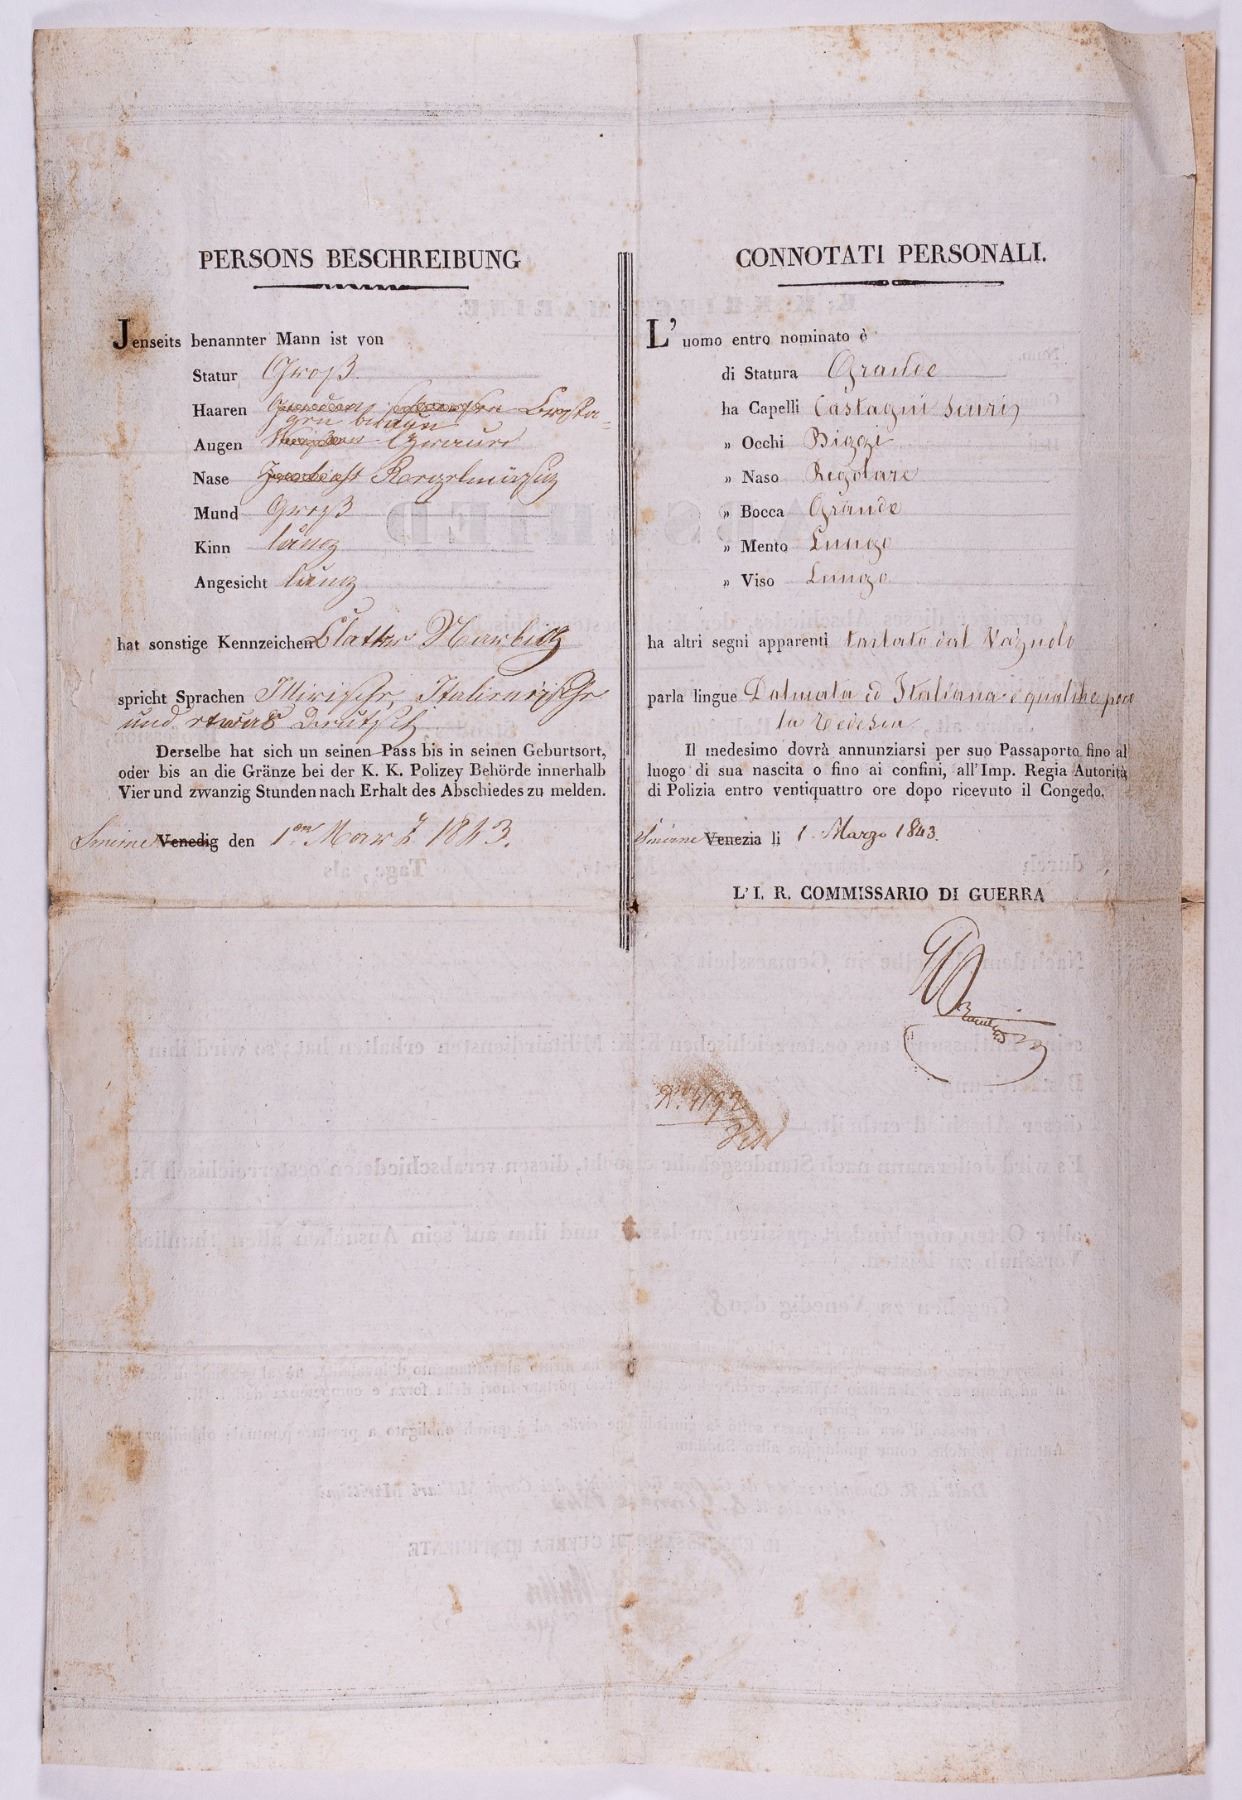 PERSONS BESCHREIBUNG
Jenseits benannter Mann ist von
Statur Groß
Haaren
Augen Graue
Nase Regelmäßig
Mund Groß
Kinn lang
Angesicht lang
hat sonstige Kennzeichen Blatter Narbig
spricht Sprachen Illirische, Italienische
und etwas Deutsch
Derselbe hat sich un seinen Pass bis in seinen Geburtsort,
oder bis an die Gränze bei der K. K. Polizey Behörde innerhalb
Vier und zwanzig Stunden nach Erhalt des Abschiedes zu melden.
Smirne Venedig den 1en März 1843.
CONNOTATI PERSONALI.
L'uomo entro nominato è
di Statura Grande
ha Capelli Castagni scuri
» Occhi Biggi
» Naso Regolare
» Bocca Grande
» Mento Lungo
» Viso Lungo
ha altri segni apparenti tarlato dal Vajuolo
parla lingue Dalmata ed Italiana e qualche poco
la Tedesca
Il medesimo dovrà annunziarsi per suo Passaporto fino al
luogo di sua nascita o fino ai confini, all'Imp. Regia Autorità
di Polizia entro ventiquattro ore dopo ricevuto il Congedo.
Smirne Venezia li 1. Marzo 1843.
L' I. R. COMMISSARIO DI GUERRA